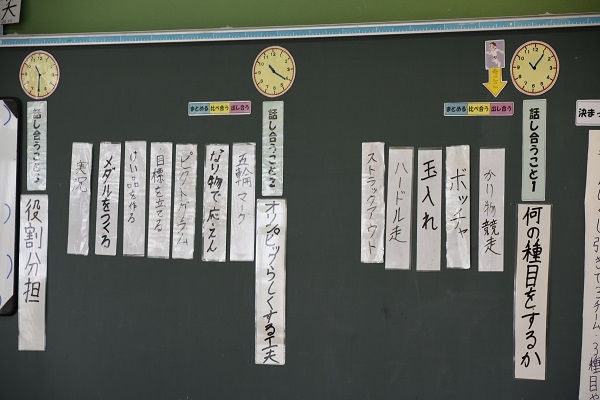 決まっ
引きで三チーム・3種目や
話し合うこと1
何の種目をするか
出し合う
比べ合う
まとめる
かり物競走
ボッチャ
玉入れ
ハードル走
ストラックアウト
話し合うこと2
オリンピックらしくする工夫
出し合う
比べ合う
まとめる
五輪マーク
なり物で応えん
ピクトグラム
目標を立てる
けい品を作る
メダルをつくる
実況
話し合うこと3
役割分担